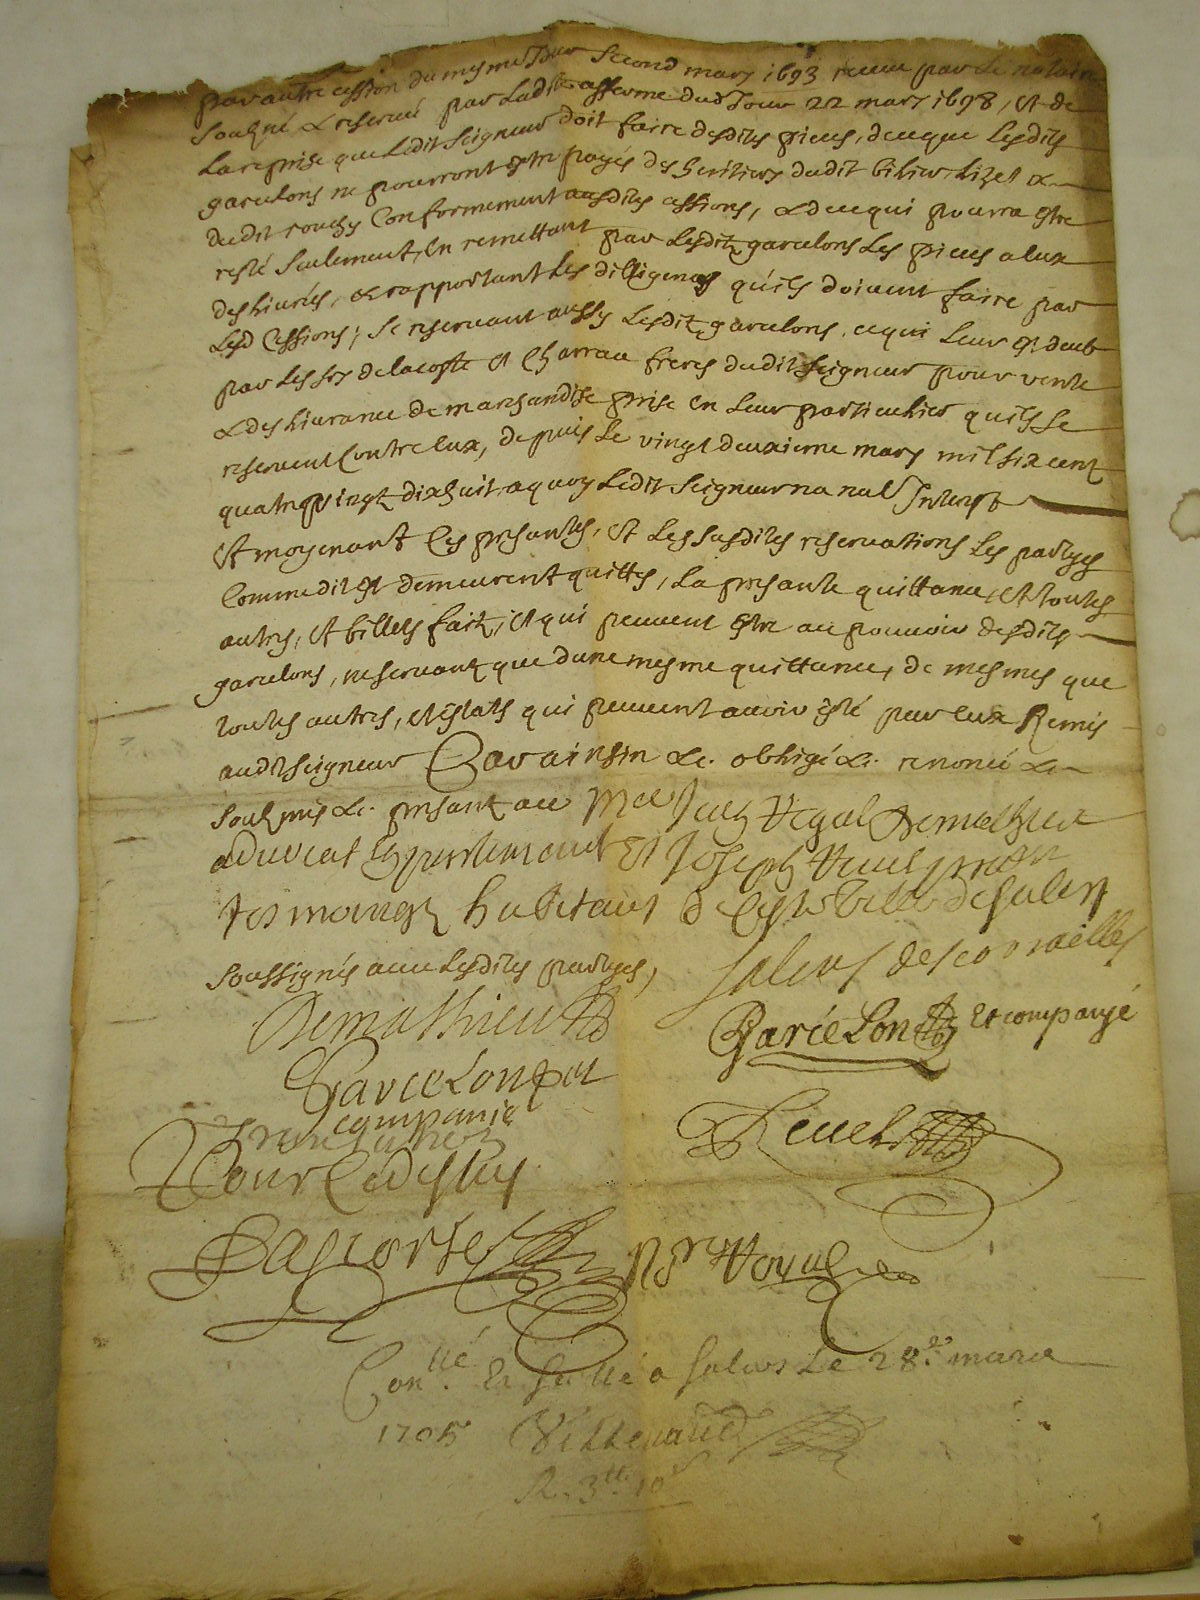 par autre cession du mesme Jour second mars 1693 receue par le notaire
soubz.né & reservé par ladite afferme dud Jour 22 mars 1698, et de
la reprise que Ledit Seigneur doit faire desdites pieces, de ce que lesdits
garcelons ne pourront estre payés des heritiers dudit
dudit rouchy Conformement ausdites cessions, & de ce qui pourra estre
resté seulement, En remettant par lesditz garcelons Les pieces a eux
deslivrées, & rapportant Les dilligences qu'ils doivent faire par
Lesd Cessions; se reservant aussy Lesditz garcelons, ce qui leur est deub
par les srs delacoste et Charrau freres dudit Seigneur pour vente
& deslivrance de marchandise prise en Leur particulier qu'ils se
reservent Contre eux, depuis Le vingt deuxieme mars mil six cent
quatre vingt dix huit, a quoy Ledit Seigneur na nul Interest
Et moyenant Ces presantes, Et Les susdites reservations Les partyes
Comme dit est demeurent quittes, La presante quittance, Et toutes
autres, Et billets faitz, Et qui peuvent Estre au pouvoir desdits
garcelons, ne servant que dune mesme quittance, de mesmes que
toutes autres, Et Estats qui peuvent avoir Esté par eux Remis
audit Seigneur Car ainsin &c. obligé &c. renoncé &c
soubzmis &c. presantz ace Mre Vegal Demathieu
advocat En parlement Et Joseph
tesmoingz habitans de Ceste Ville de Salers
soussignés avec Lesdites partyes,
Salers descorailles
Demathieu
Garcelon Et compangé
Garcelon et
companie
Revel
Pour Ledessus
Laporte
Nre Royal
Con.llé Et sellé a Salers Le 28.e mars
1705
R. 3tt 10s